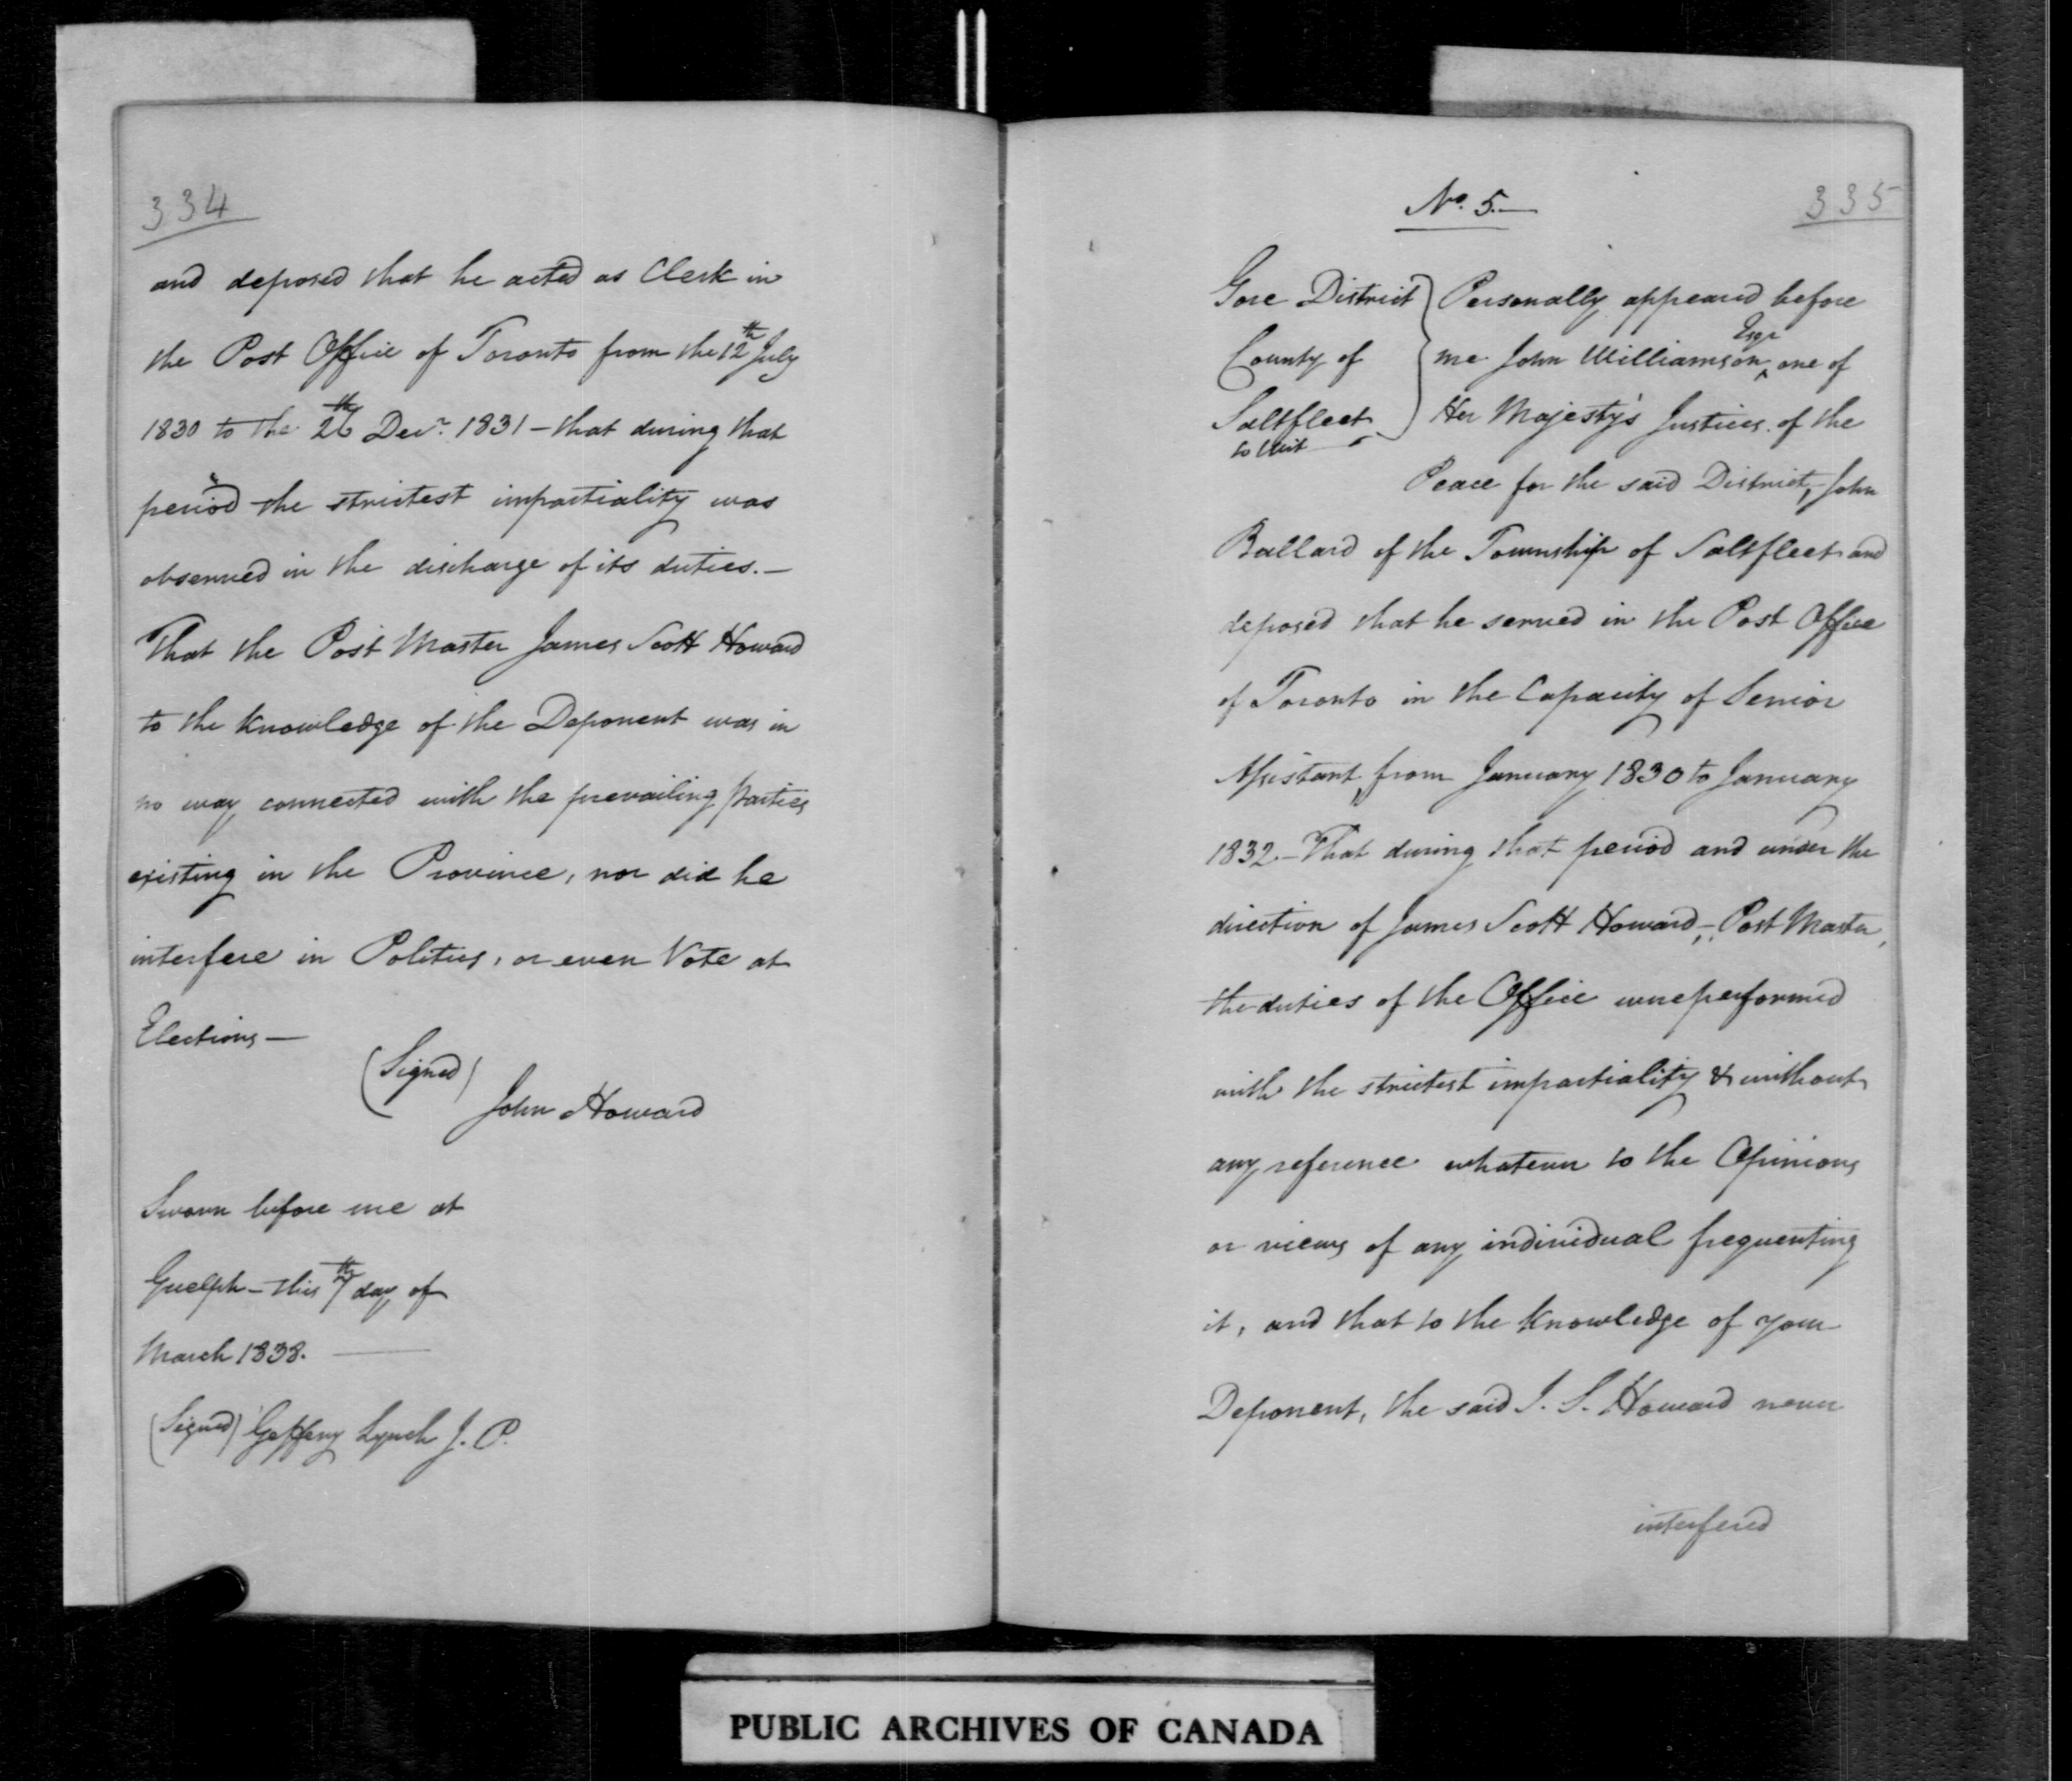 334
and deposed that he acted as Clerk in
the Post Office of Toronto from the 12th July
1830 to the 26th Decr. 1831 – that during that
period the strictest impartiality was
observed in the discharge of its duties. –
That the Post Master James Scott Howard
to the Knowledge of the Deponent was in
no way connected with the prevailing parties
existing in the Province, nor did he
interfere in Politics, or even Vote at
Elections —
(Signed)
John Howard
Sworn before me at
Guelph – this 7th day of
March 1838. —
(Signed) Lynch J. P.
No. 5. —
335
Gore District } Personally appeared before
County of } me John Williamson Esqr one of
Saltfleet } Her Majesty's Justices of the
to wit
Peace for the said District, John
Ballard of the Township of Saltfleet and
deposed that he served in the Post Office
of Toronto in the Capacity of Senior
Assistant, from January 1830 to January
1832. – That during that period and under the
direction of James Scott Howard –, Post Master,
the duties of the Office were performed
with the strictest impartiality & without
any reference whatever to the Opinions
or views of any individual frequenting
it, and that to the Knowledge of your
Deponent, the said J. S. Howard never
interfered
PUBLIC ARCHIVES OF CANADA